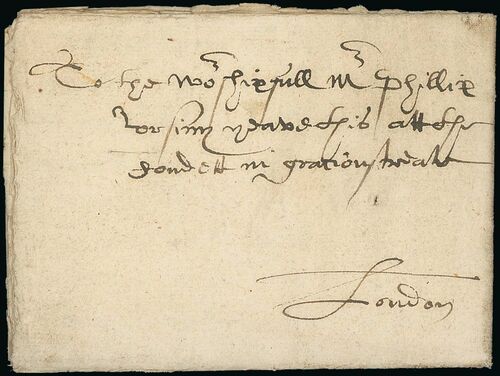 To the Worshipfull Mr Phillip
Corsinj geave this att the
Condett in gratioustreate
London